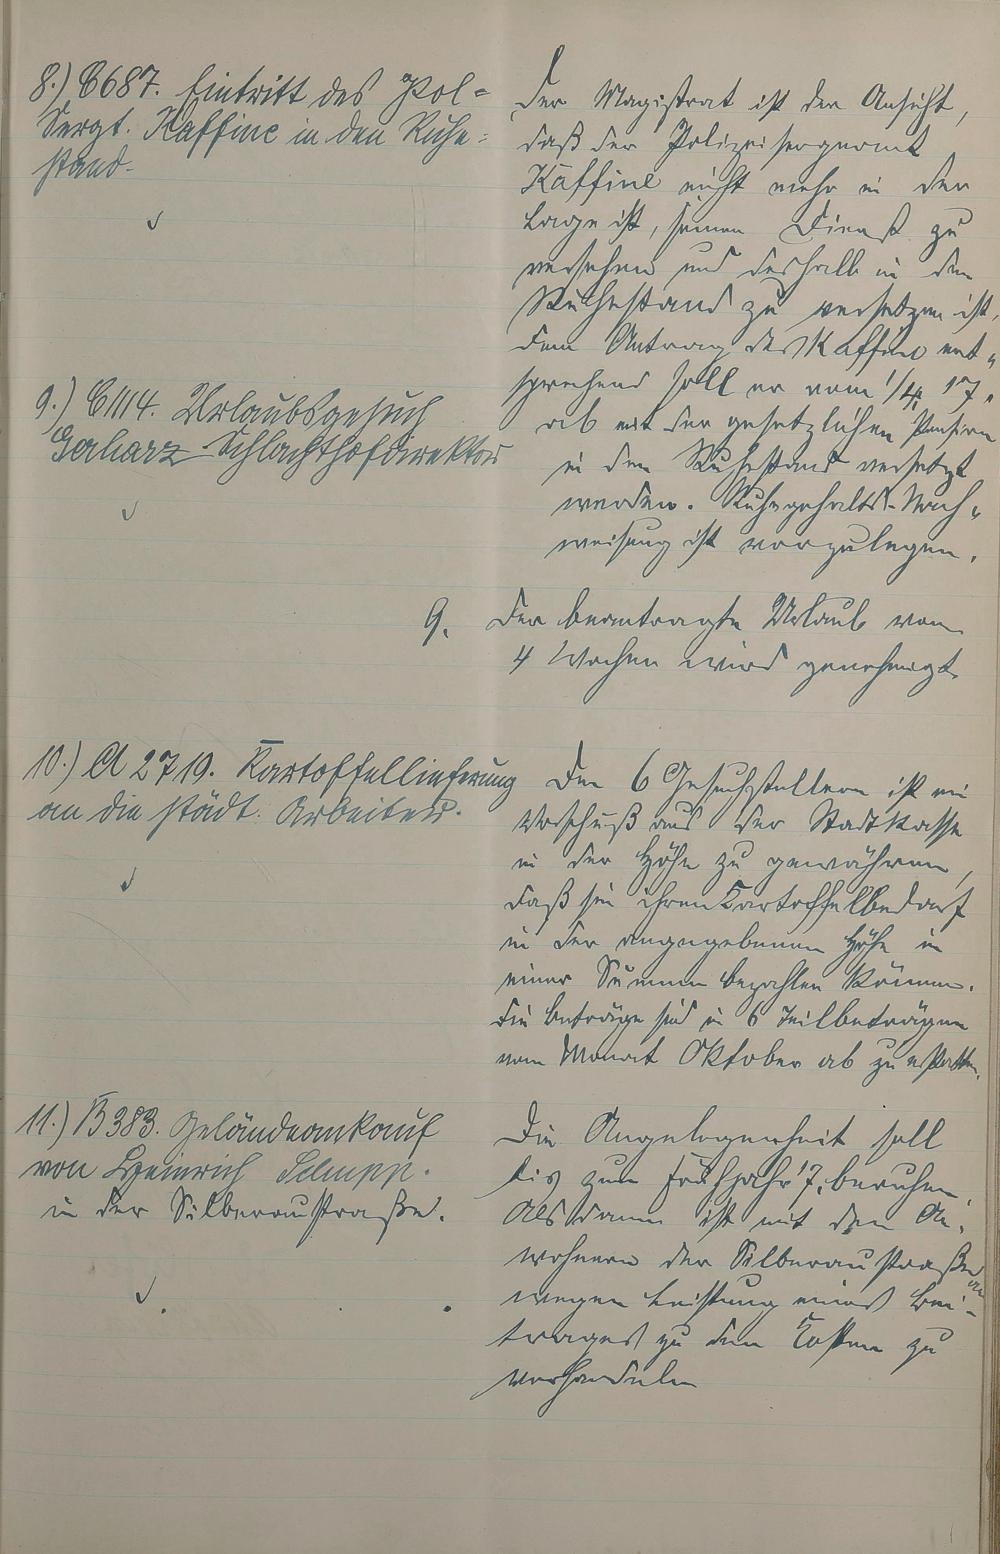 8.) C687. Eintritt des Pol=
Sergt. Kaffine in den Ruhe=
stand.
Der Magistrat ist der Ansicht,
daß der Polizeisergeant
Kaffine nicht mehr in der
Lage ist, seinen Dienst zu
versehen und deshalb in den
Ruhestand zu versetzen ist.
Dem Antrag des Kaffine ent=
sprechend soll er vom 1/4. 17.
ab mit der gesetzlichen Pension
in den Ruhestand versetzt
werden. Ruhegehalts-Nach=
weisung ist vorzulegen.
9.) C1114. Urlaubsgesuch
Gerharz Schlachthofdirektor
9. Der beantragte Urlaub von
4 Wochen wird genehmigt.
10.) A 2719. Kartoffellieferung
an die städt. Arbeiter.
Den 6 Gesuchstellern ist ein
Vorschuß aus der Stadtkasse
in der Höhe zu gewähren,
daß sie ihren Kartoffelbedarf
in der angegebenen Höhe in
einer Summe bezahlen können.
Die Beträge sind in 6 Teilbeträgen
vom Monat Oktober ab zu erstatten.
11.) B383. Geländeankauf
von Heinrich
in der Silberaustraße.
Die Angelegenheit soll
bis zum Frühjahr 17. beruhen.
Alsdann ist mit den An=
wohnern der Silberaustraße
wegen Leistung eines Bei=
trages zu den Kosten zu
verhandeln